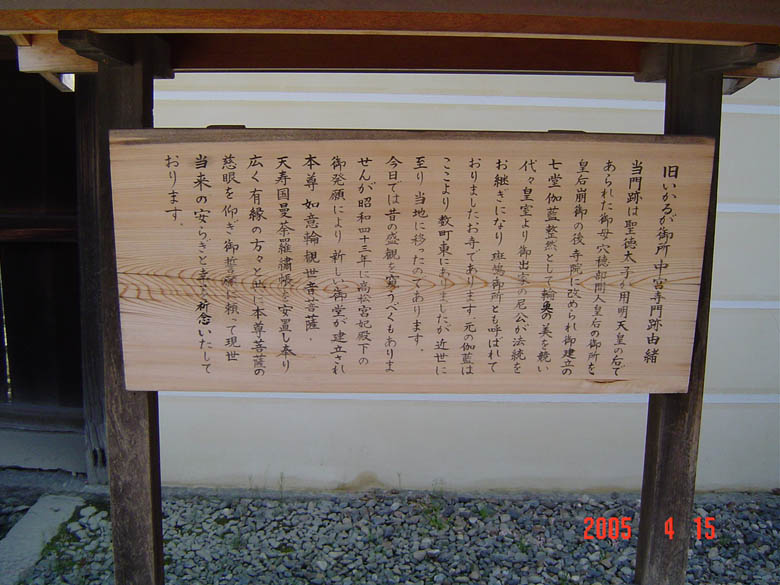 旧いかるが御所中宮寺門跡由緒
当門跡は聖徳太子が用明天皇の后で
あられた御母穴穂部間人皇后の御所を
皇后崩御の後寺院に改められ御建立の
七堂伽藍整然として輪奐の美を競い
代々皇室より御出家の尼公が法統を
お継ぎになり斑鳩御所とも呼ばれて
おりましたお寺であります。元の伽藍は
ここより数町東にありましたが近世に
至り当地に移ったのであります。
今日では昔の盛観を窺うべくもありま
せんが昭和四十三年に高松宮妃殿下の
御発願により新しい御堂が建立され
本尊如意輪観世音菩薩、
天寿国曼荼羅繍帳を安置し奉り
広く有縁の方々と共に本尊菩薩の
慈眼を仰ぎ御誓願に頼って現世
当来の安らぎとを祈念いたして
おります。
2005 4 15